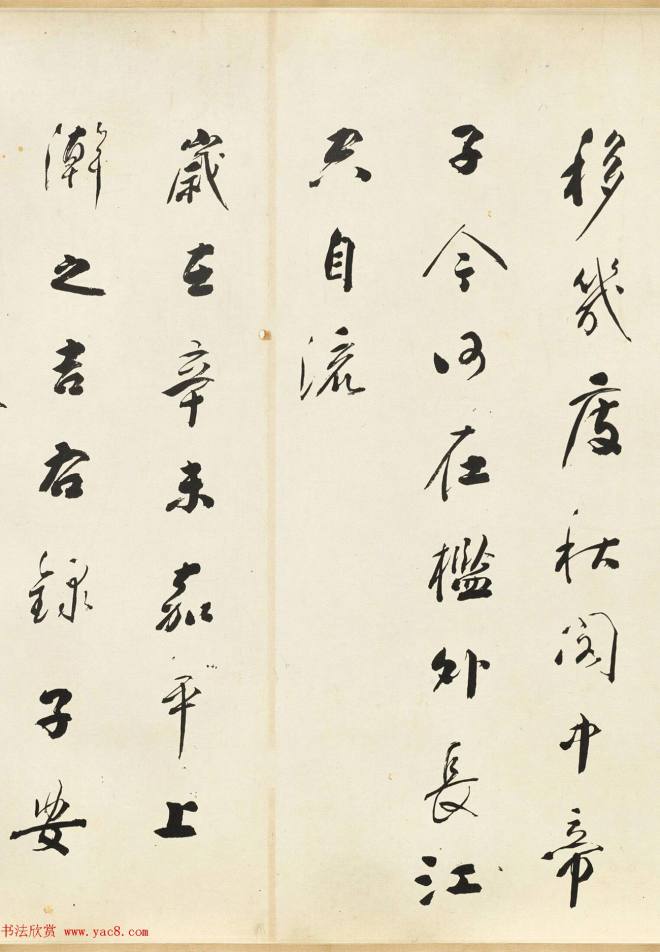 移幾度秋閣中帝
子今何在檻外長江
空自流
歲在辛未嘉平上
澣之吉右録子安
书法欣赏 www.yac8.com